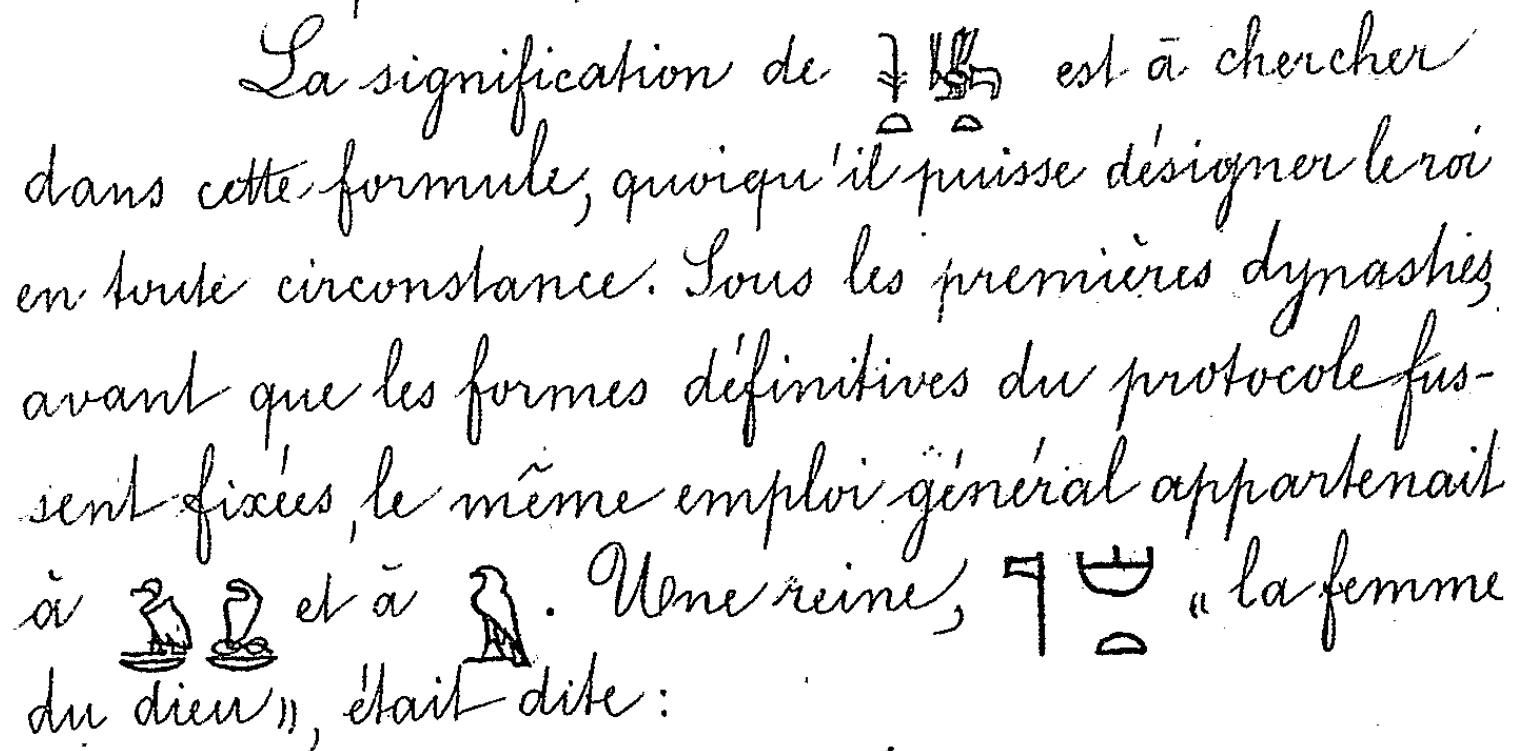 La signification de 𓇓𓏏𓆤𓏏 est à chercher
dans cette formule, quoiqu'il puisse désigner le roi
en toute circonstance. Sous les premières dynasties,
avant que les formes définitives du protocole fus-
sent fixées, le même emploi général appartenait
à 𓅒 et à 𓅃. Une reine, 𓊹𓈞𓏏 « la femme
du dieu », était dite :